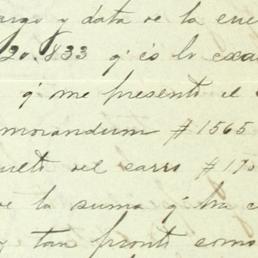 argo y data de la cue
20.833 q' és lo exa
q' me presentó el
emorandum #1565
uelto del carro #170
de la suma q' ha
y tan pronto como